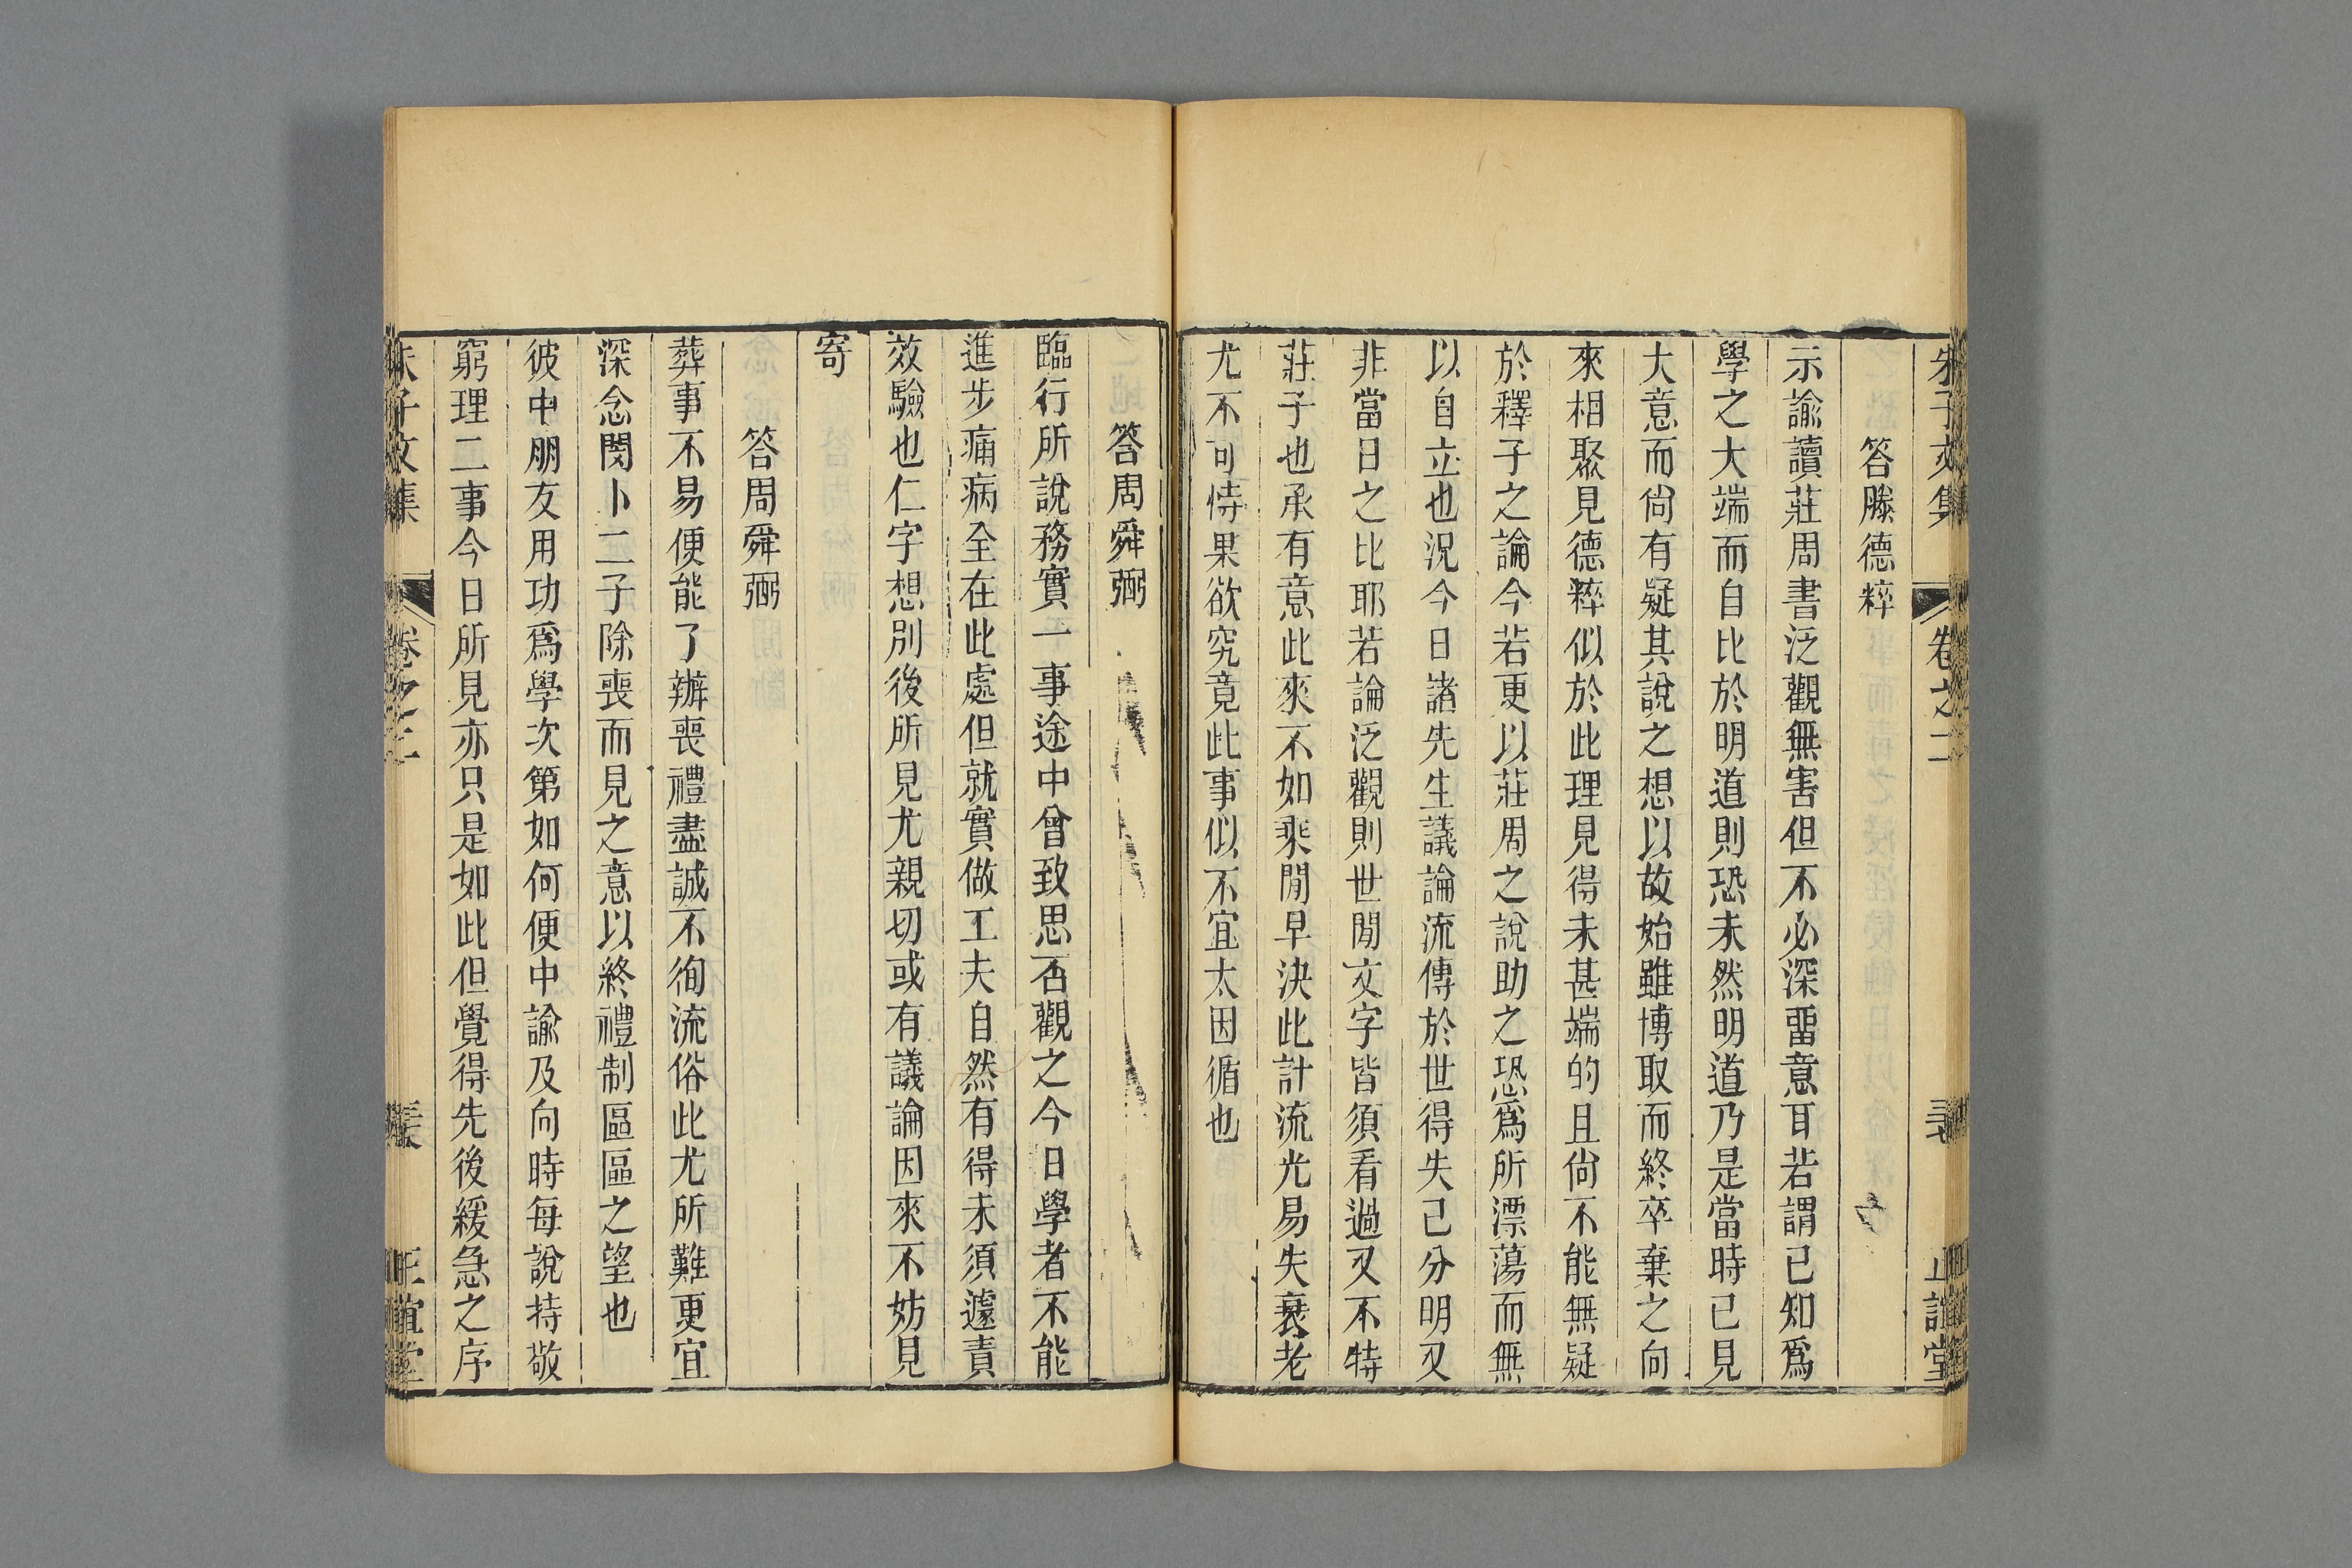 朱子文集
卷之二
正誼堂
答滕德粹
示諭讀莊周書泛觀無害但不必深畱意耳若謂已知爲
學之大端而自比於明道則恐未然明道乃是當時已見
大意而尙有疑其說之想以故始雖博取而終卒棄之向
來相聚見德粹似於此理見得未甚端的且尙不能無疑
於釋子之論今若更以莊周之說助之恐爲所漂蕩而無
以自立也況今日諸先生議論流傳於世得失已分明又
非當日之比耶若論泛觀則世閒文字皆須看過又不特
莊子也承有意此來不如乘閒早決此計流光易失衰老
尤不可恃果欲究竟此事似不宜太因循也
答周舜弼
臨行所說務實一事途中曾致思否觀之今日學者不能
進步痛病全在此處但就實做工夫自然有得未須遽責
效驗也仁字想別後所見尤親切或有議論因來不妨見
寄
答周舜弼
葬事不易便能了辦喪禮盡誠不徇流俗此尤所難更宜
深念閔卜二子除喪而見之意以終禮制區區之望也
彼中朋友用功爲學次第如何便中諭及向時每說持敬
窮理二事今日所見亦只是如此但覺得先後緩急之序
朱子文集
卷之二
正誼堂